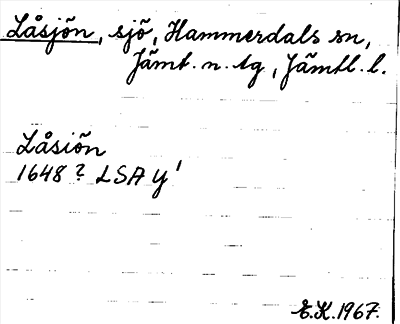 Låsjön, sjö, Hammerdals sn,
Jämt. n. tg, Jämtl. l.
Låsiön
1648? LSA y¹
E.K. 1967.